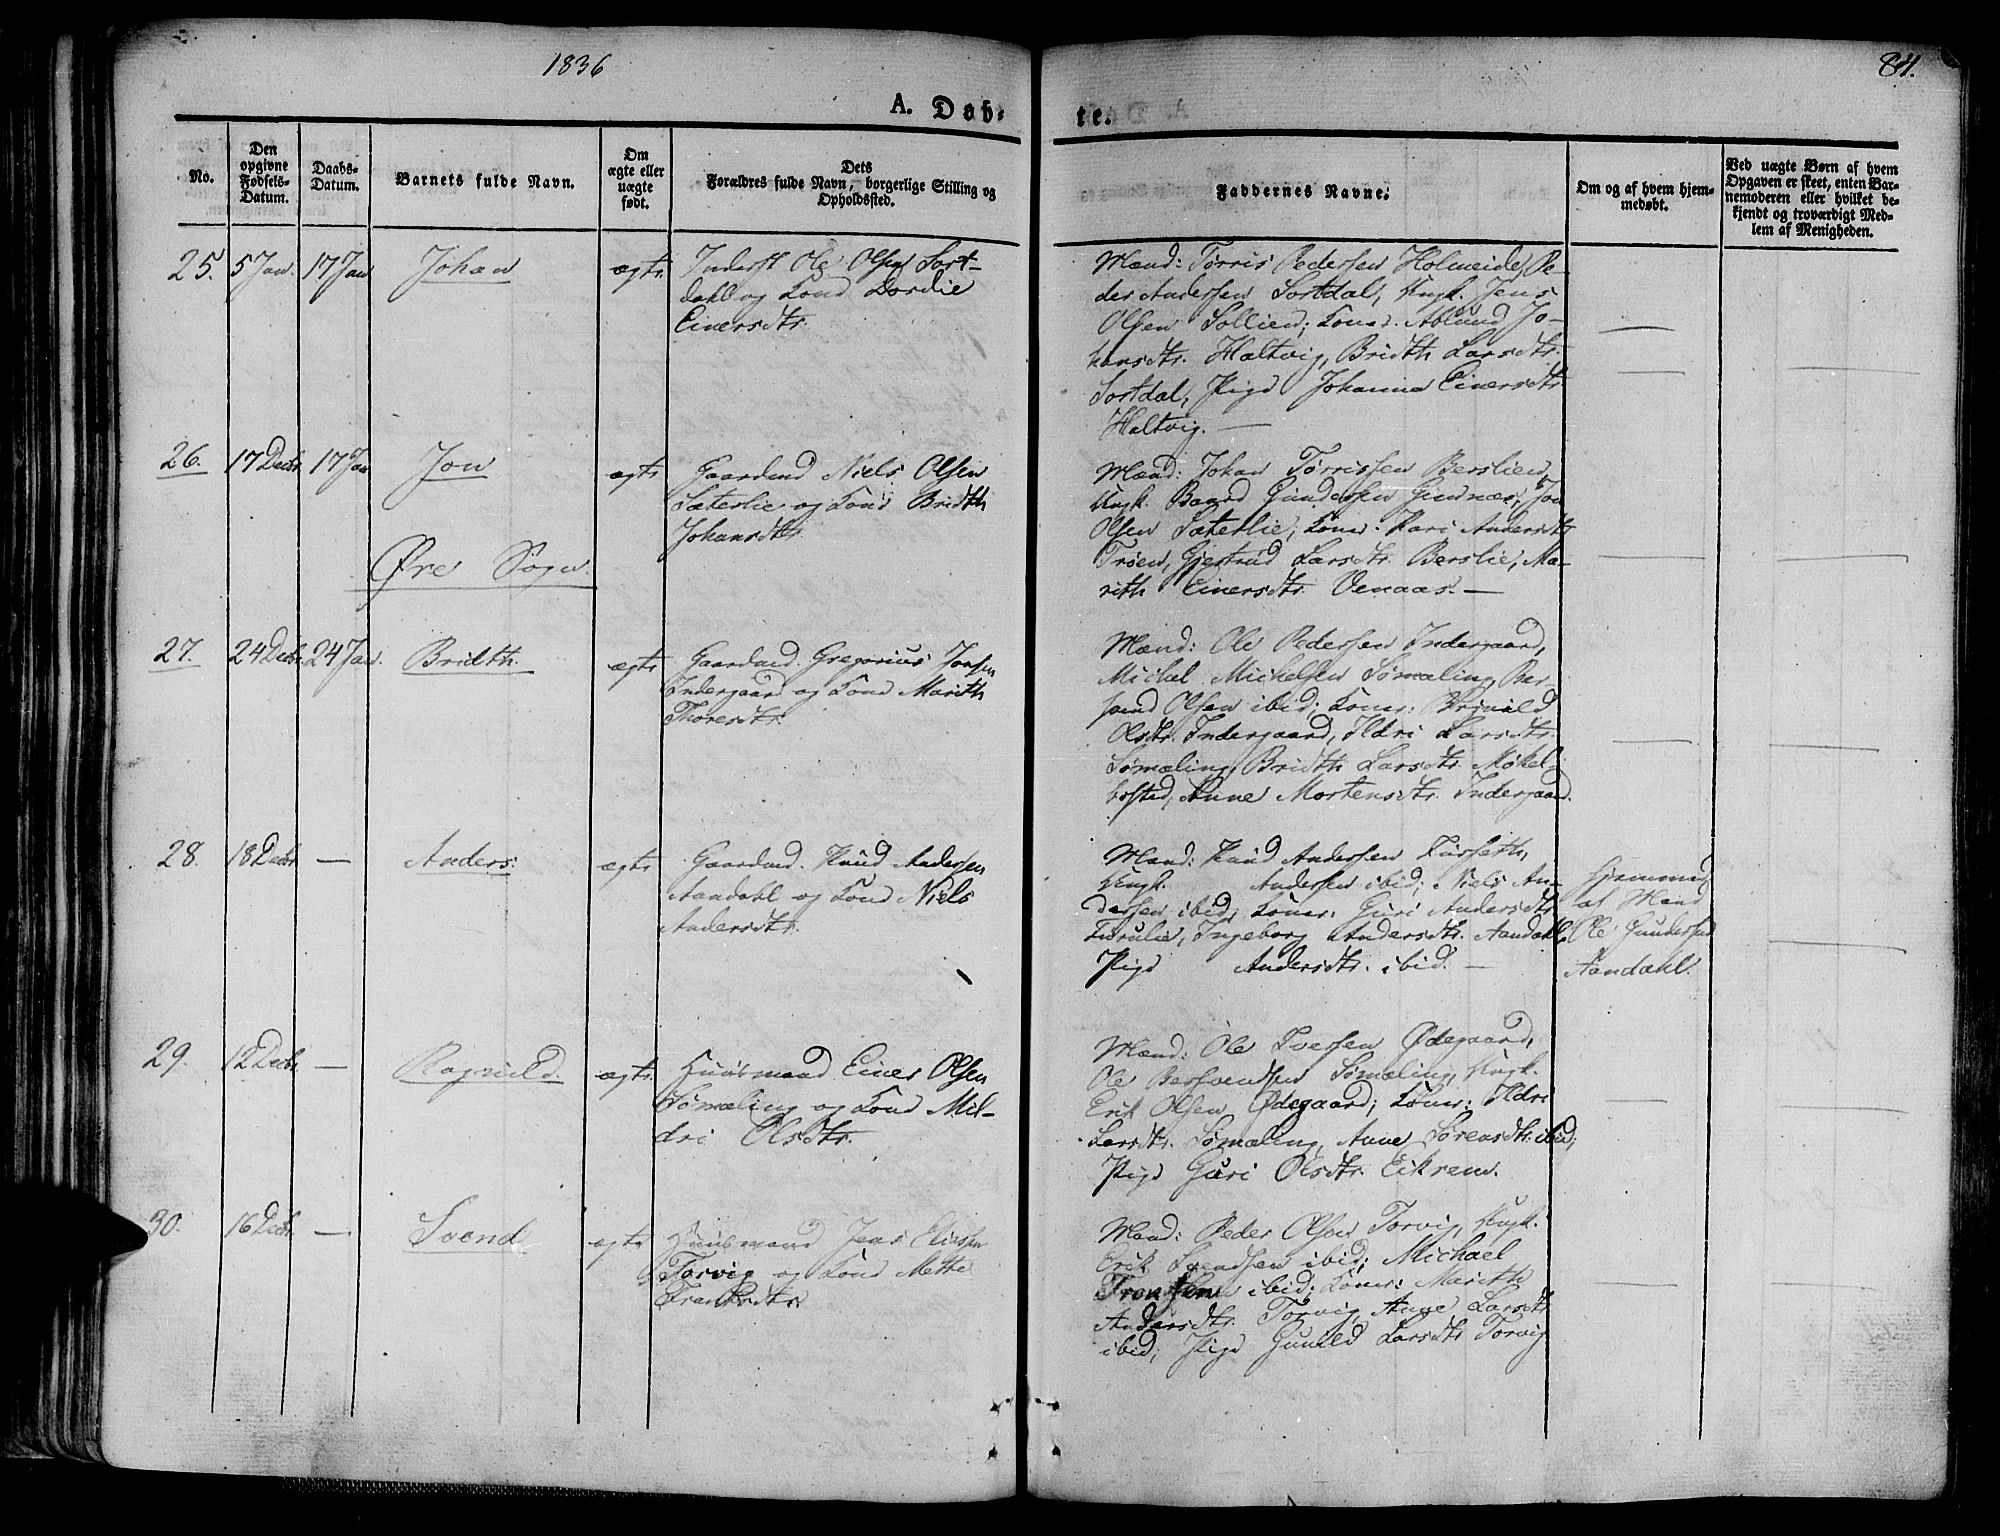 1836
84.
A. Døb-
te.
No.
Den
opgivne
Fødsels-
Datum.
Daabs-
Datum.
Barnets fulde Navn.
Om
ægte eller
uægte
født.
Dets
Forældres fulde Navn, borgerlige Stilling og
Opholdssted.
Faddernes Navne.
Om og af hvem hjem-
medøbt.
Ved uægte Børn af hvem
Opgaven er skeet, enten Bar-
nemoderen eller hvilket be-
kjendt og troværdigt Med-
lem af Menigheden.
25. 5 Jan. 17 Jan Johan ægte Inderst Ole Olsen Sort-
dahl og Kone Dordie
Einersdtr.
Mænd: Tørris Pedersen Holmeide, Pe-
der Andersen Sortdal, Ungk. Jens
Olsen Sollien; Koner. Ablund Jo-
hansdtr. Haltvig, Bridth Larsdtr.
Sortdal, Pige Johanna Einersdtr
Haltvig. —
26. 17 Decbr. 17 Jan Jon ægte Gaardmd Niels Olsen
Sæterlie og Kone Bridth
Johansdtr.
Mænd: Johan Tørrissen Berslien,
Ungk. Baard Gundersen Gimnæs, Jon
Olsen Sæterlie, Koner. Kari Andersdtr
Trøen, Gjertrud Larsdtr. Berslie, Ma-
rith Einersdtr. Venaas. —
Øre Sogn.
27. 24 Decbr. 24 Jan. Bridth. ægte Gaardmd. Gregorius Jonsen
Indergaard og Kone Marith
Thoresdtr.
Mænd: Ole Pedersen Indergaard,
Michel Michelsen Sømæling, Ber-
svend Olsen ibid; Koner: Ragnild
Olsdtr. Indergaard, Ildri Larsdtr.
Sømæling, Bridth Larsdtr. Møkel-
bosted, Anne Mortensdtr. Indergaard.
28. 18 Decbr. — Anders. ægte Gaardmd. Knud Andersen
Aandahl og Kone Niels
Andersdtr.
Mænd: Knud Andersen Furseth,
Ungk. Andersen ibid; Niels An-
dersen ibid; Koner: Guri Andersdtr
Furulie, Ingeborg Andersdtr. Aandahl,
Pige Andersdtr. ibid. —
Hjemmed.
af Mand
Ole Gundersen
Aandahl.
29. 12 Decbr. — Ragnild. ægte Huusmand Einer Olsen
Sømæling og Kone Mil-
dri Olsdtr.
Mænd: Ole Iversen Ødegaard,
Ole Bersvendsen Sømæling, Ungk.
Erik Olsen Ødegaard; Koner: Ildri
Larsdtr. Sømæling, Anne Sørensdtr. ibid;
Pige Guri Olsdtr. Eikrem.
30. 16 Decbr. — Svend ægte Huusmand Jens
Torvig og Kone Mette
Frantsdtr.
Mænd: Peder Olsen Torvig, Ungk.
Erik Svendsen ibid; Michael
Tronsen ibid; Koner: Marith
Andersdtr. Torvig, Anne Larsdtr
ibid; Pige Gunild Larsdtr Torvig